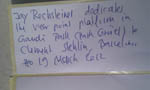 Jay Rechsteiner dedicates
the view point platform in
Gaudi Park (Park Güell) to
Clasmal, Barcelona
19 March 2012